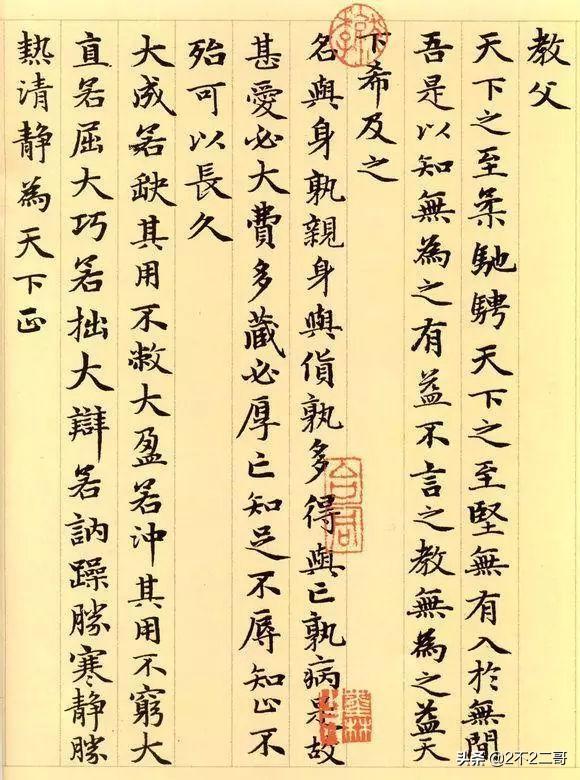 教父
天下之至柔馳騁天下之至堅無有入於無間
吾是以知無為之有益不言之教無為之益天
下希及之
名與身孰親身與貨孰多得與亡孰病是故
甚愛必大費多藏必厚亡知足不辱知止不
殆可以長久
大成若缺其用不敝大盈若沖其用不窮大
直若屈大巧若拙大辯若訥躁勝寒靜勝
熱清靜為天下正
头条 @2不2二哥